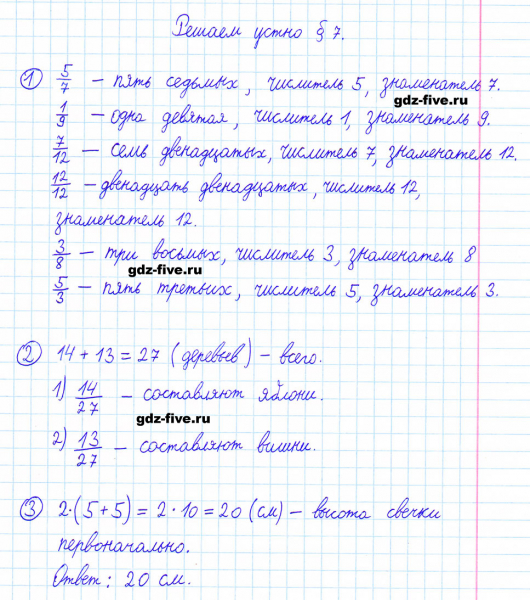 Решаем устно § 7.
① 5/7 – пять седьмых, числитель 5, знаменатель 7.
gdz-five.ru
1/9 – одна девятая, числитель 1, знаменатель 9.
7/12 – семь двенадцатых, числитель 7, знаменатель 12.
12/12 – двенадцать двенадцатых, числитель 12,
знаменатель 12.
3/8 – три восьмых, числитель 3, знаменатель 8
gdz-five.ru
5/3 – пять третьих, числитель 5, знаменатель 3.
② 14 + 13 = 27 (деревьев) – всего.
1) 14/27 – составляют яблони.
gdz-five.ru
2) 13/27 – составляют вишни.
③ 2·(5+5) = 2·10 = 20 (см) – высота свечки
первоначально.
Ответ: 20 см.